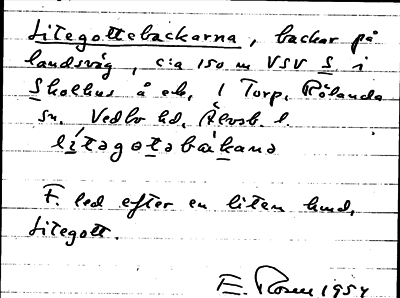 Litegottebackarna, backar på
landsväg, c:a 150 m VSV S i
Skolhus å ek, 1 Torp, Rölanda
sn. Vedbo hd, Älvsb. l.
lítəgɔtəbakanə
F. led efter en liten hund,
Litegott.
E. Rosen 1954